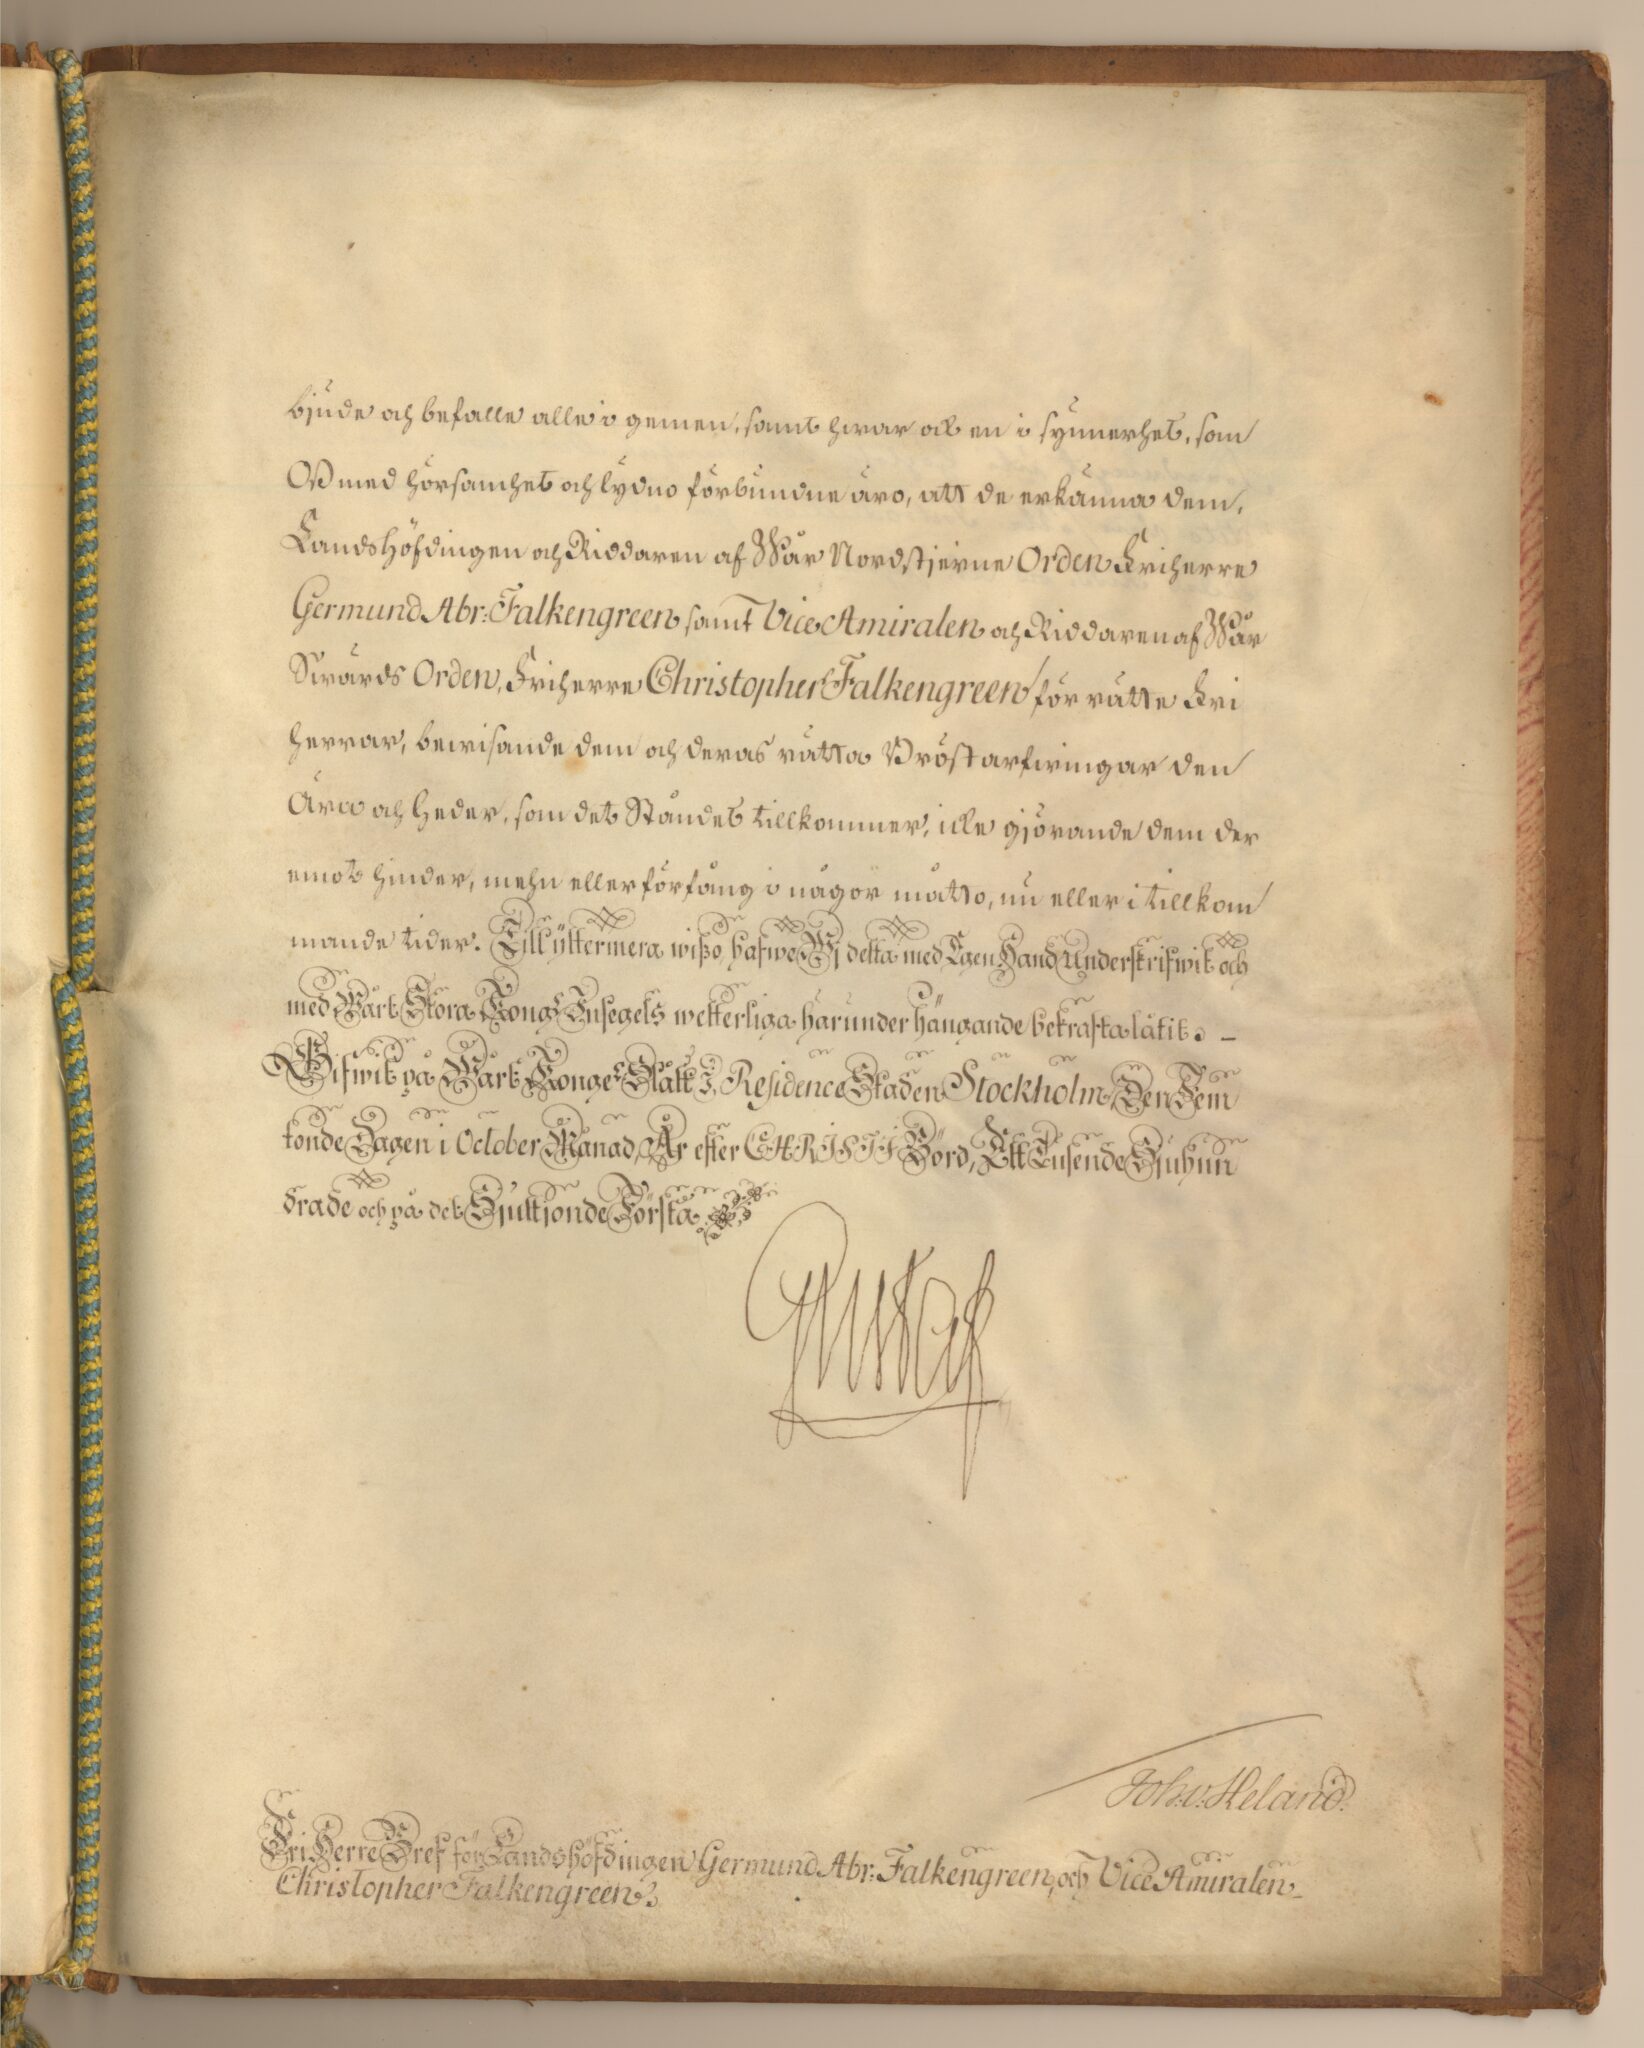 bjude och befalle alle i gemen, samt hwar och en i synnerhet, som
Oß med hörsamhet och lydno förbundne äro, att de erkänna dem,
Landshöfdingen och Riddaren af Wår Nordstjerne Orden Friherre
Germund Abr: Falkengreen samt Vice Amiralen och Riddaren af Wår
Swärds Orden, Friherre Christopher Falkengreen för rätte Fri
herrar, bewisande dem och deras rätta Bröstarfwingar den
Ära och Heder, som det Ståndet tillkommer, icke gjörande dem der
emot hinder, mehn eller förfång i någor måtto, nu eller i tillkom
mande tider. Till yttermera wißo, hafwe Wj detta med Egen Hand Underskrifwit och
med Wårt Stora Kongl. Insegels wetterliga härunder hängande bekrafta låtit. –
Gifwit på Wårt Kongl. Slått i Residence Staden Stockholm, Den Fem
tonde Dagen i October Månad, År efter CHRISTI Börd, Ett Tusende Sjuhun
drade och på det Sjuttjonde Första.
Gustaf
Joh: v: Heland.
Fri Herre Bref för Landshöfdingen Germund Abr: Falkengreen, och Vice Amiralen
Christopher Falkengreen.